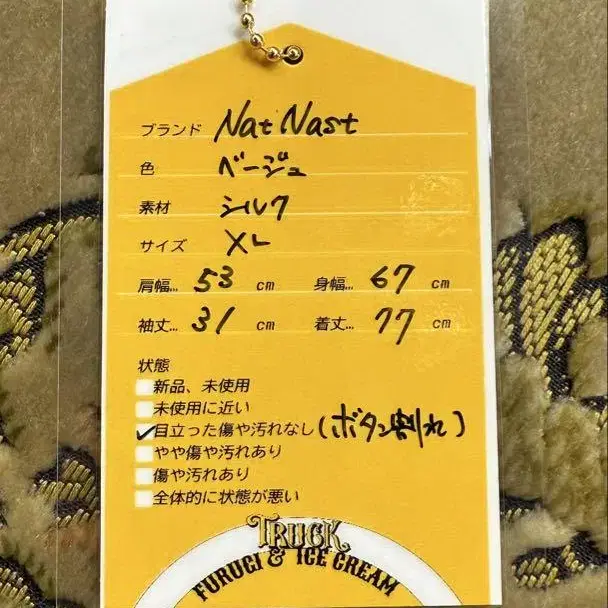 ブランド Nat Nast
色 ベージュ
素材 シルク
サイズ XL
肩幅... 53 cm 身幅... 67 cm
袖丈... 31 cm 着丈... 77 cm
状態
新品、未使用
未使用に近い
✓目立った傷や汚れなし(ボタン割れ)
やや傷や汚れあり
傷や汚れあり
全体的に状態が悪い
TRUCK
FURUGI & ICE CREAM